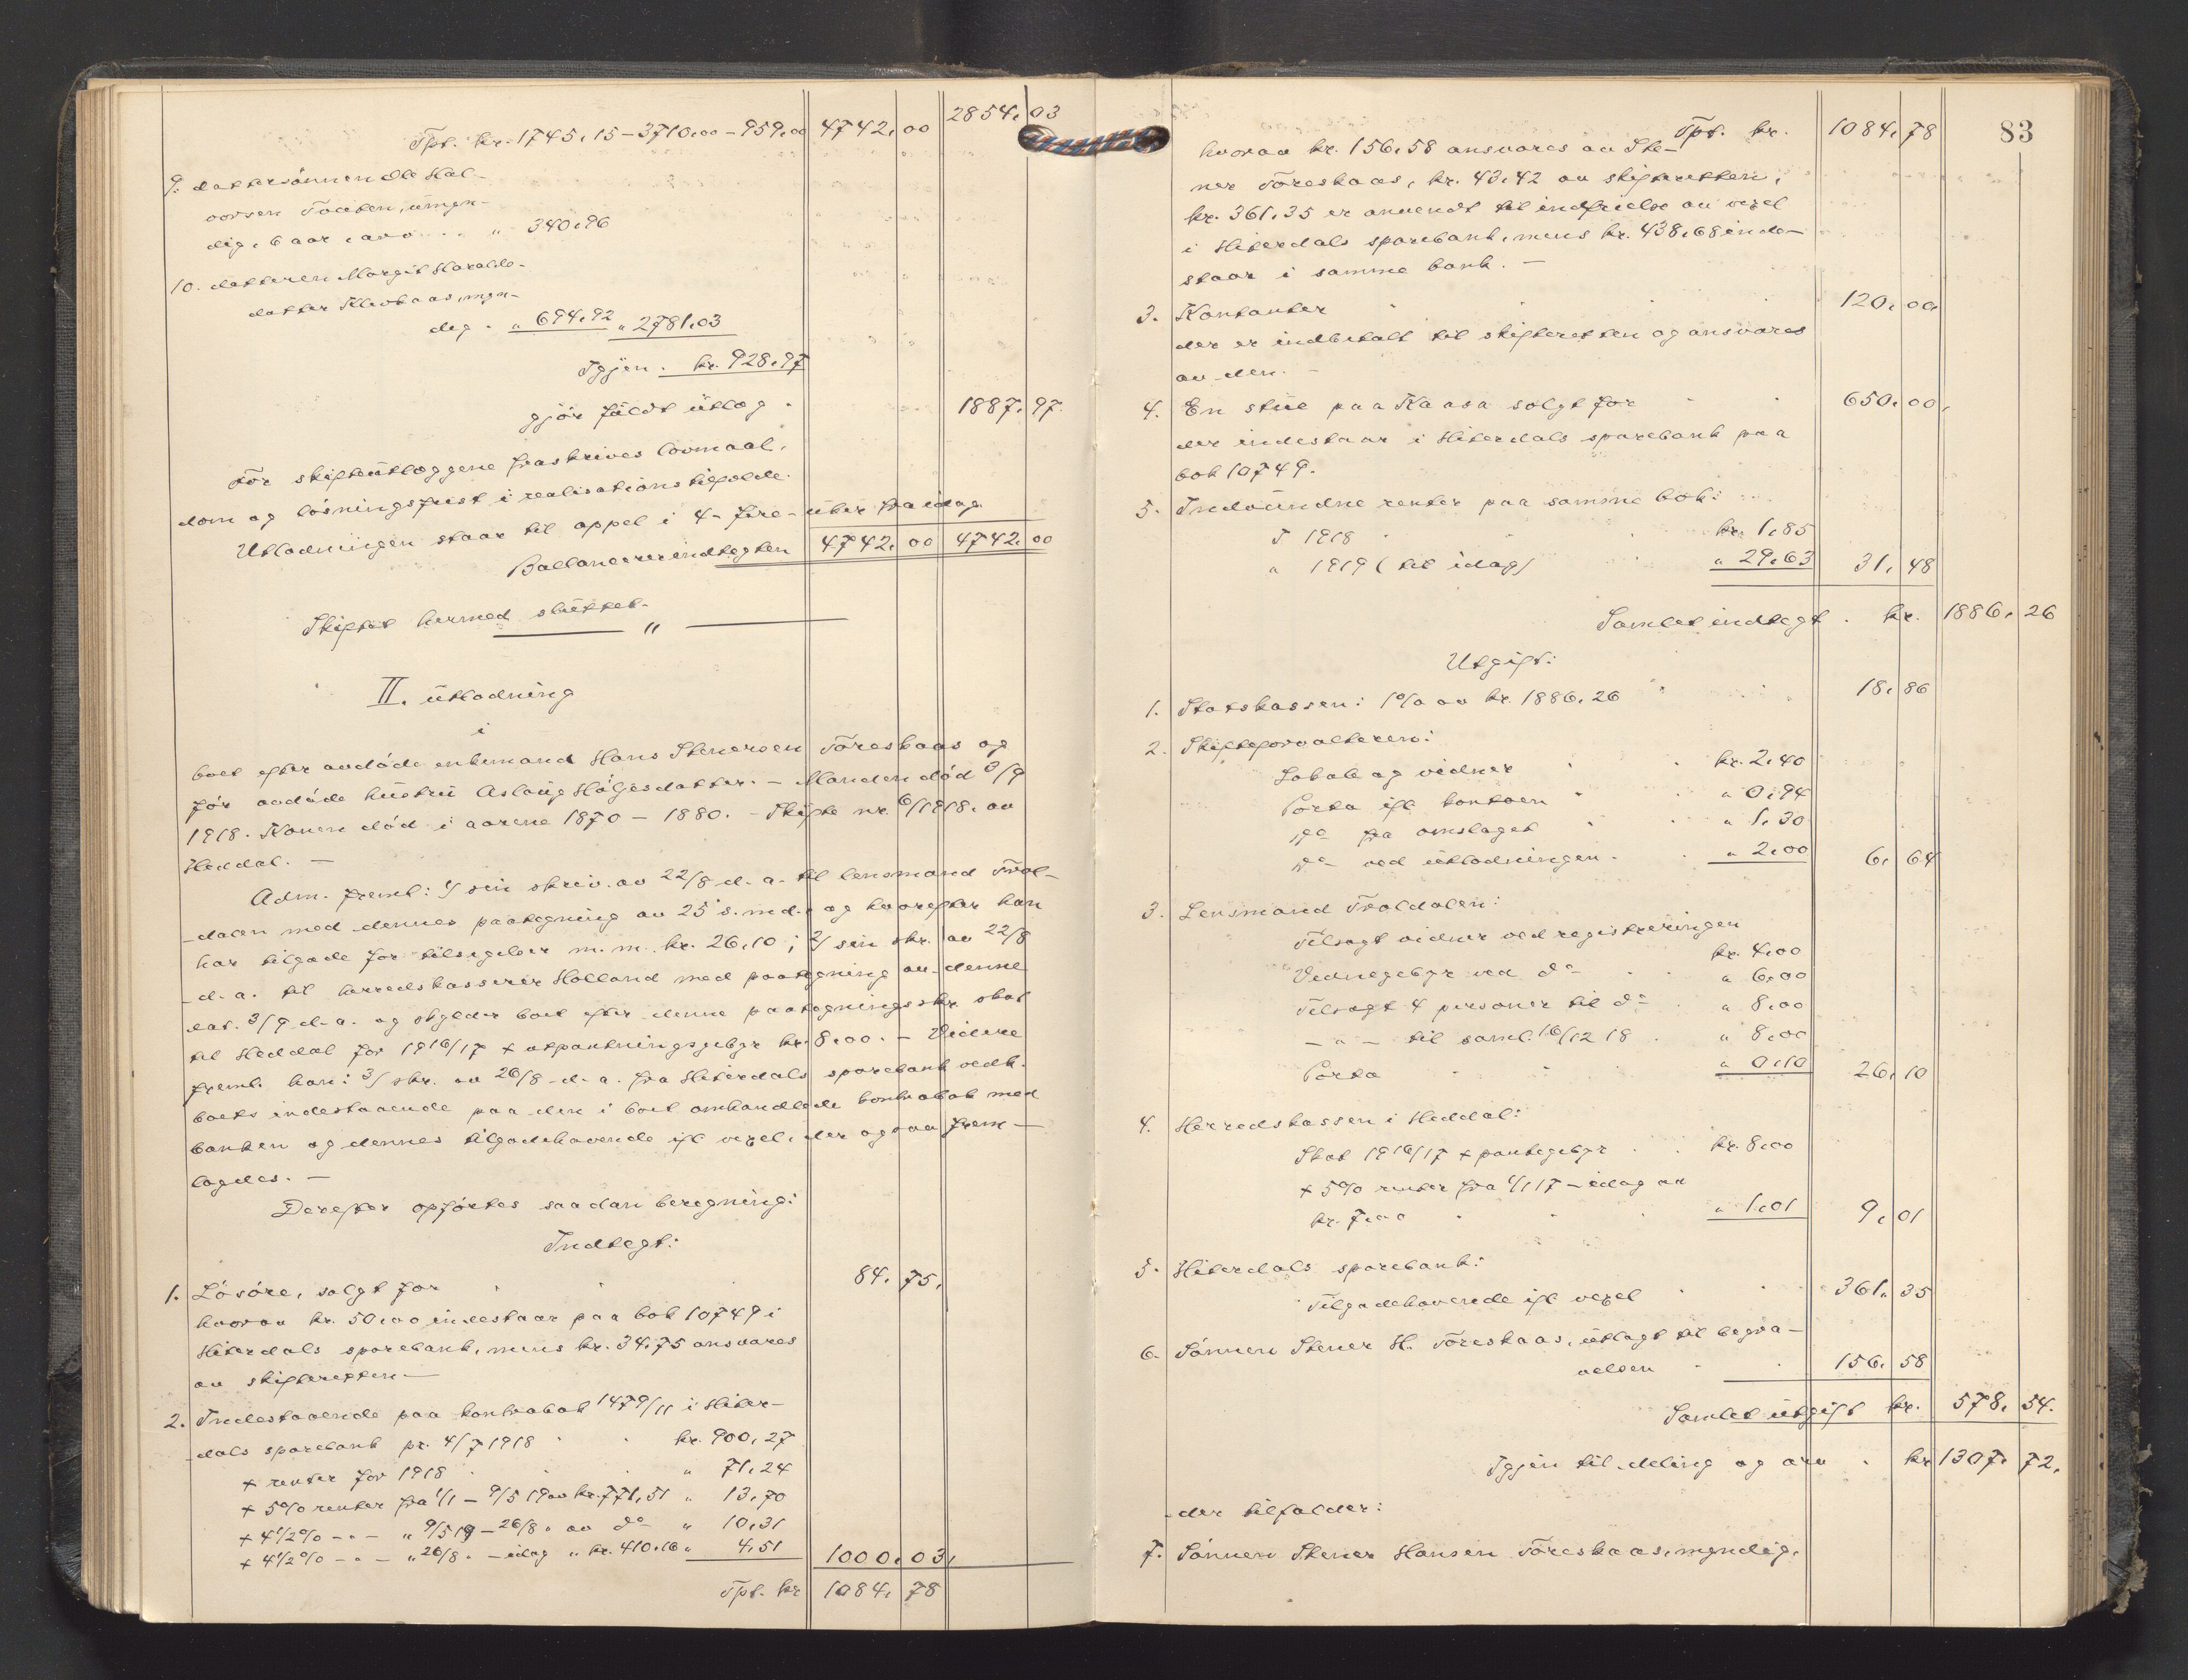 Tpt. kr. 1745,15 – 3710,00 – 959,00 4742,00 2854,03
9. dattersönnen Ole Hal-
vorsen Tveiten, umyn-
dig, 6 aar, arv . . " 340,96
10. datteren Margit Haralds-
datter Klevkaas, myn-
dig . " 694,92 " 2781,03
Igjen . kr. 928,97
gjör fuldt utlog . 1887,97
For skifteutlæggene fraskrives lovmaal,
dom og lösningsfrist i realisationstilfælde.
Utlodningen staar til appel i 4- fire- uker fra idag.
Ballancerer indtegten 4742,00 4742,00
Skiftet hermed sluttet.
"
II. utlodning
i
boet efter avdöde enkemand Hans Stenersen Töreskaas og
för avdöde hustru Aslaug Höljesdatter. – Manden död 3/9
1918. Konen död i aarene 1870 – 1880. – Skifte nr. 6/1918, av
Heddal. –
Adm. freml: 1/ sin skriv. av 22/8 d. a. til lensmand Trol-
dalen med dennes paategning av 25 s. md. og hvorefter han
har tilgode for tilsigelser m. m. kr. 26,10; 2/ sin skr. av 22/8
d. a. til herredskasserer Holland med paategning av denne
dat. 3/9 d. a. og skylder boet efter denne paategningsskr. skat
til Heddal for 1916/17 + utpantningsgebyr kr. 8,00. – Videre
freml. han: 3/ skr. av 26/8 d. a. fra Hiterdals sparebank vedk.
boets indestaaende paa den i boet omhandlede kontrabok med
banken og dennes tilgodehavende ifl vexel, der ogsaa frem-
lagdes. –
Derefter opförtes saadan beregning:
Indtegt:
1. Lösöre, solgt for 84,75,
hvorav kr. 50,00 indestaar paa bok 10749 i
Hiterdals sparebank, mens kr. 34,75 ansvares
av skifteretten. –
2. Indestaaende paa kontrabok 1479/11 i Hiter-
dals sparebank pr. 4/7 1918 kr. 900,27
+ renter for 1918 " 71,24
+ 5% renter fra 1/1 – 9/5 19 av kr. 771,51 " 13,70
+ 4 1/2 % – " – " 9/5 19 – 26/8 " av do " 10,31
+ 4 1/2 % – " – " 26/8 " – idag " kr. 410,16 " 4,51 1000,03,
Tpt. kr 1084,78
83
Tpt. kr. 1084,78
hvorav kr. 156,58 ansvares av Ste-
ner Töreskaas, kr. 43,42 av skifteretten,
kr. 361,35 er anvendt til indfrielse av vexel
i Hiterdals sparebank, mens kr. 438,68 inde-
staar i samme bank. –
3. Kontanter 120,00,
der er indbetalt til skifteretten og ansvares
av den. –
4. En stue paa Kaasa solgt for 650,00,
der indestaar i Hiterdals sparebank paa
bok 10749.
5. Indvundne renter paa samme bok:
I 1918 kr. 1,85
" 1919 (til idag) " 29,63 31,48
Samlet indtegt . kr. 1886,26
Utgift:
1. Statskassen: 1% av kr. 1886,26 18,86
2. Skifteforvalteren:
Lokale og vidner kr. 2,40
Porto ifl kontoen " 0,94
do fra omslaget " 1,30
do ved utlodningen . " 2,00 6,64
3. Lensmand Troldalen:
Tilsagt vidner ved registreringen
kr. 4,00
Vidnegebyr ved do " 6,00
Tilsagt 4 personer til do " 8,00
– " – til saml. 16/12 18 " 8,00
Porto " 0,10 26,10
4. Herredskassen i Heddal:
Skat 1916/17 + pantegebyr kr. 8,00
+ 5% renter fra 1/1 17 – idag av
kr. 7,00 " 1,01 9,01
5. Hiterdals sparebank:
Tilgodehavende ifl vexel 361,35
6. Sönnen Stener H. Töreskaas, utlagt til begra-
velsen 156,58
Samlet utgift kr. 578,54.
Igjen til deling og arv . kr 1307,72,
der tilfalder:
7. Sönnen Stener Hansen Töreskaas, myndig,